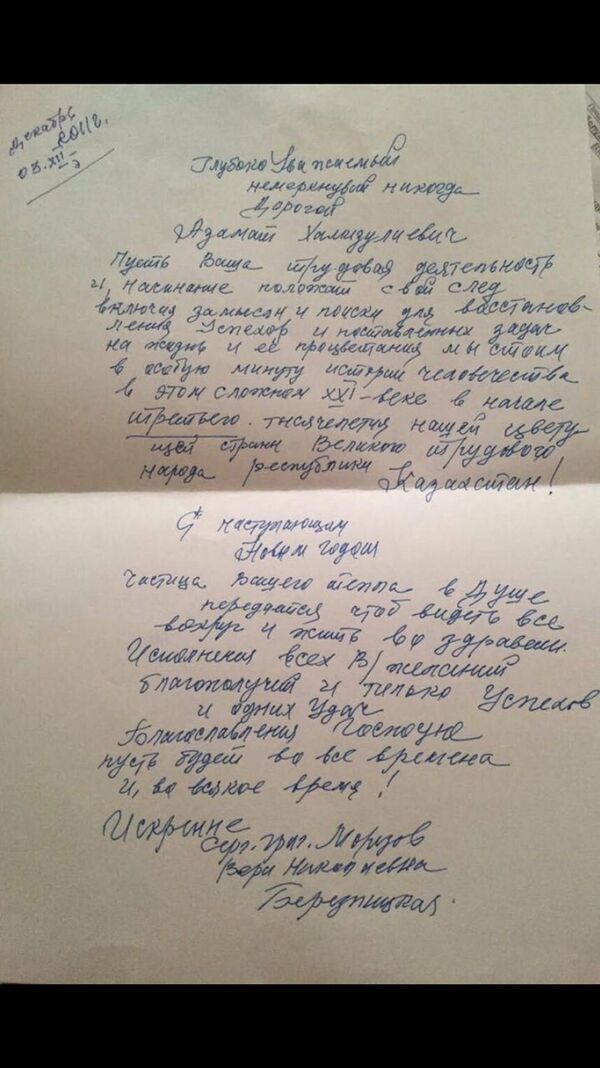 Декабрь
2011г.
03.XII
Глубоко Уважаемый
немеркнувый никогда
Дорогой
Азамат Хамидулиевич
Пусть Ваша трудовая деятельность
и, начинание положат свой след
включия замысли и поиски для васстанов-
ления Успехор и поставленных задач
на жизнь и её процветания мы стоим
в особую минуту истории человечества
в этом сложном XXI-веке в начале
третьего. тысячелетия нашей цвету
щей страны Великого трудового
народа республики Казахстан!
С наступающим
Новым годом
частица Вашего тепла в Душе
передается чтоб видеть все
вокруг и жить во здравеии.
Исполнения всех В/желаний
благополучий и только Успехов
и одних Удач
Благославления Господне
пусть будет во все времена
и, во всякое время!
Искренне
Серг. григ. Морозов
Вера Николаевна